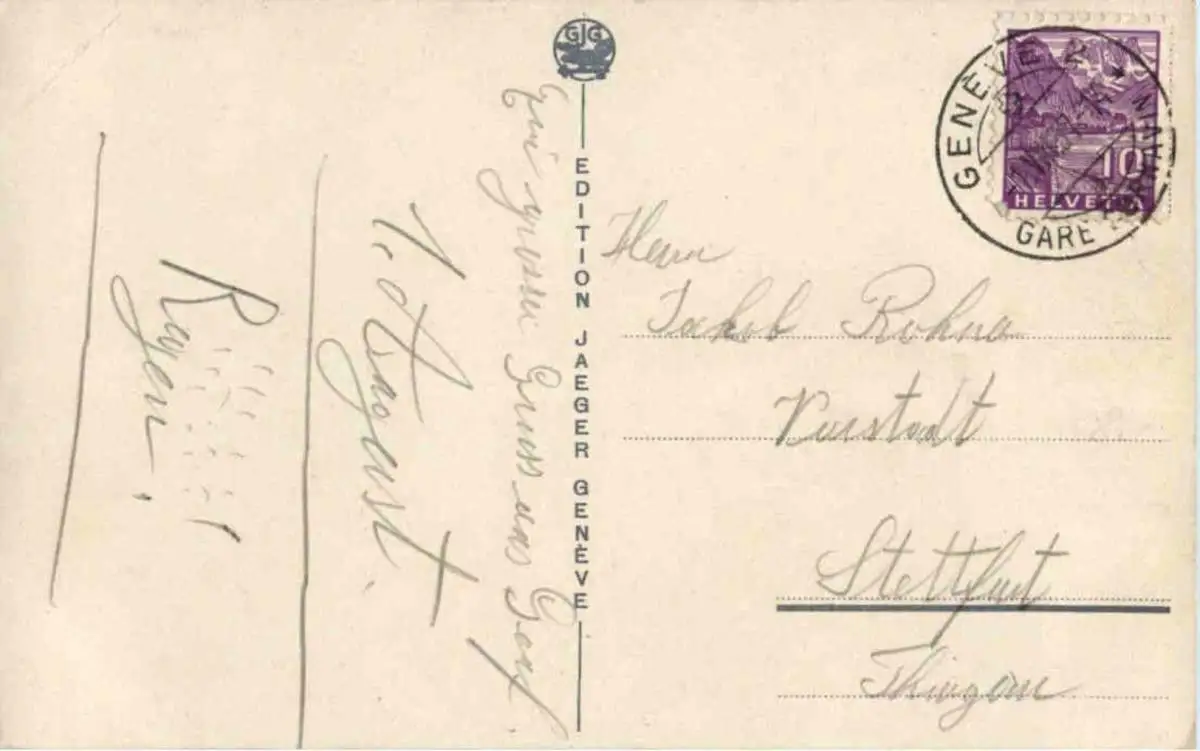 GJG
EDITION JAEGER GENÈVE
Gruss aus Genf
1. August
Regen.
Herrn
Jakob Rohna
Vorstadt
Stettfurt
Thurgau
GENÈVE 2
GARE
10
HELVETIA